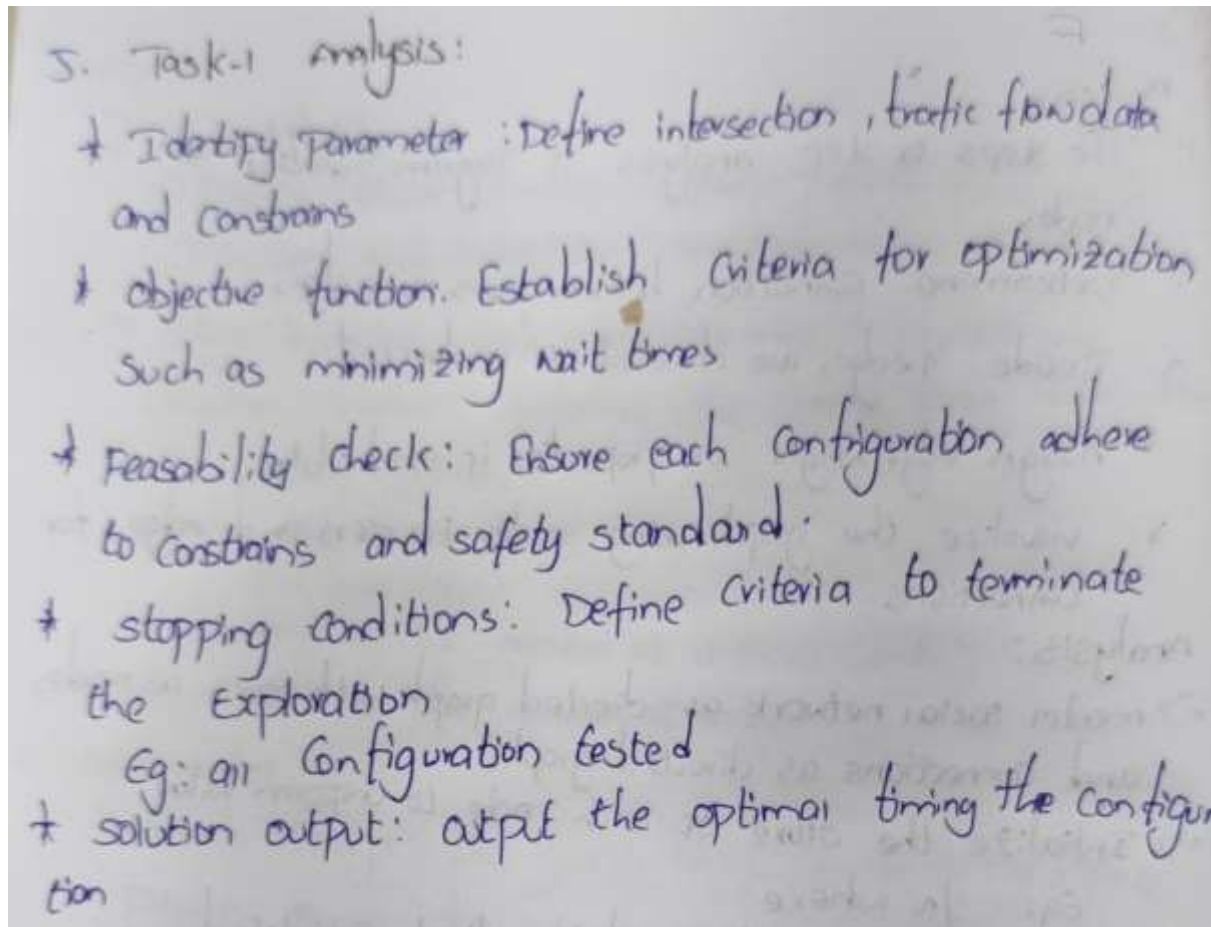 5. Task-1 Analysis:
* Idetipy parameter : Define intersection , trafic flow data
and constrains
* objective function. Establish criteria for optimization
such as minimizing wait times
* Feasability check: Ensure each configuration adhere
to constrains and safety standard.
* stopping conditions: Define criteria to terminate
the Exploration
Eg: all Configuration tested
* solution output: output the optimal timing the configur
tion